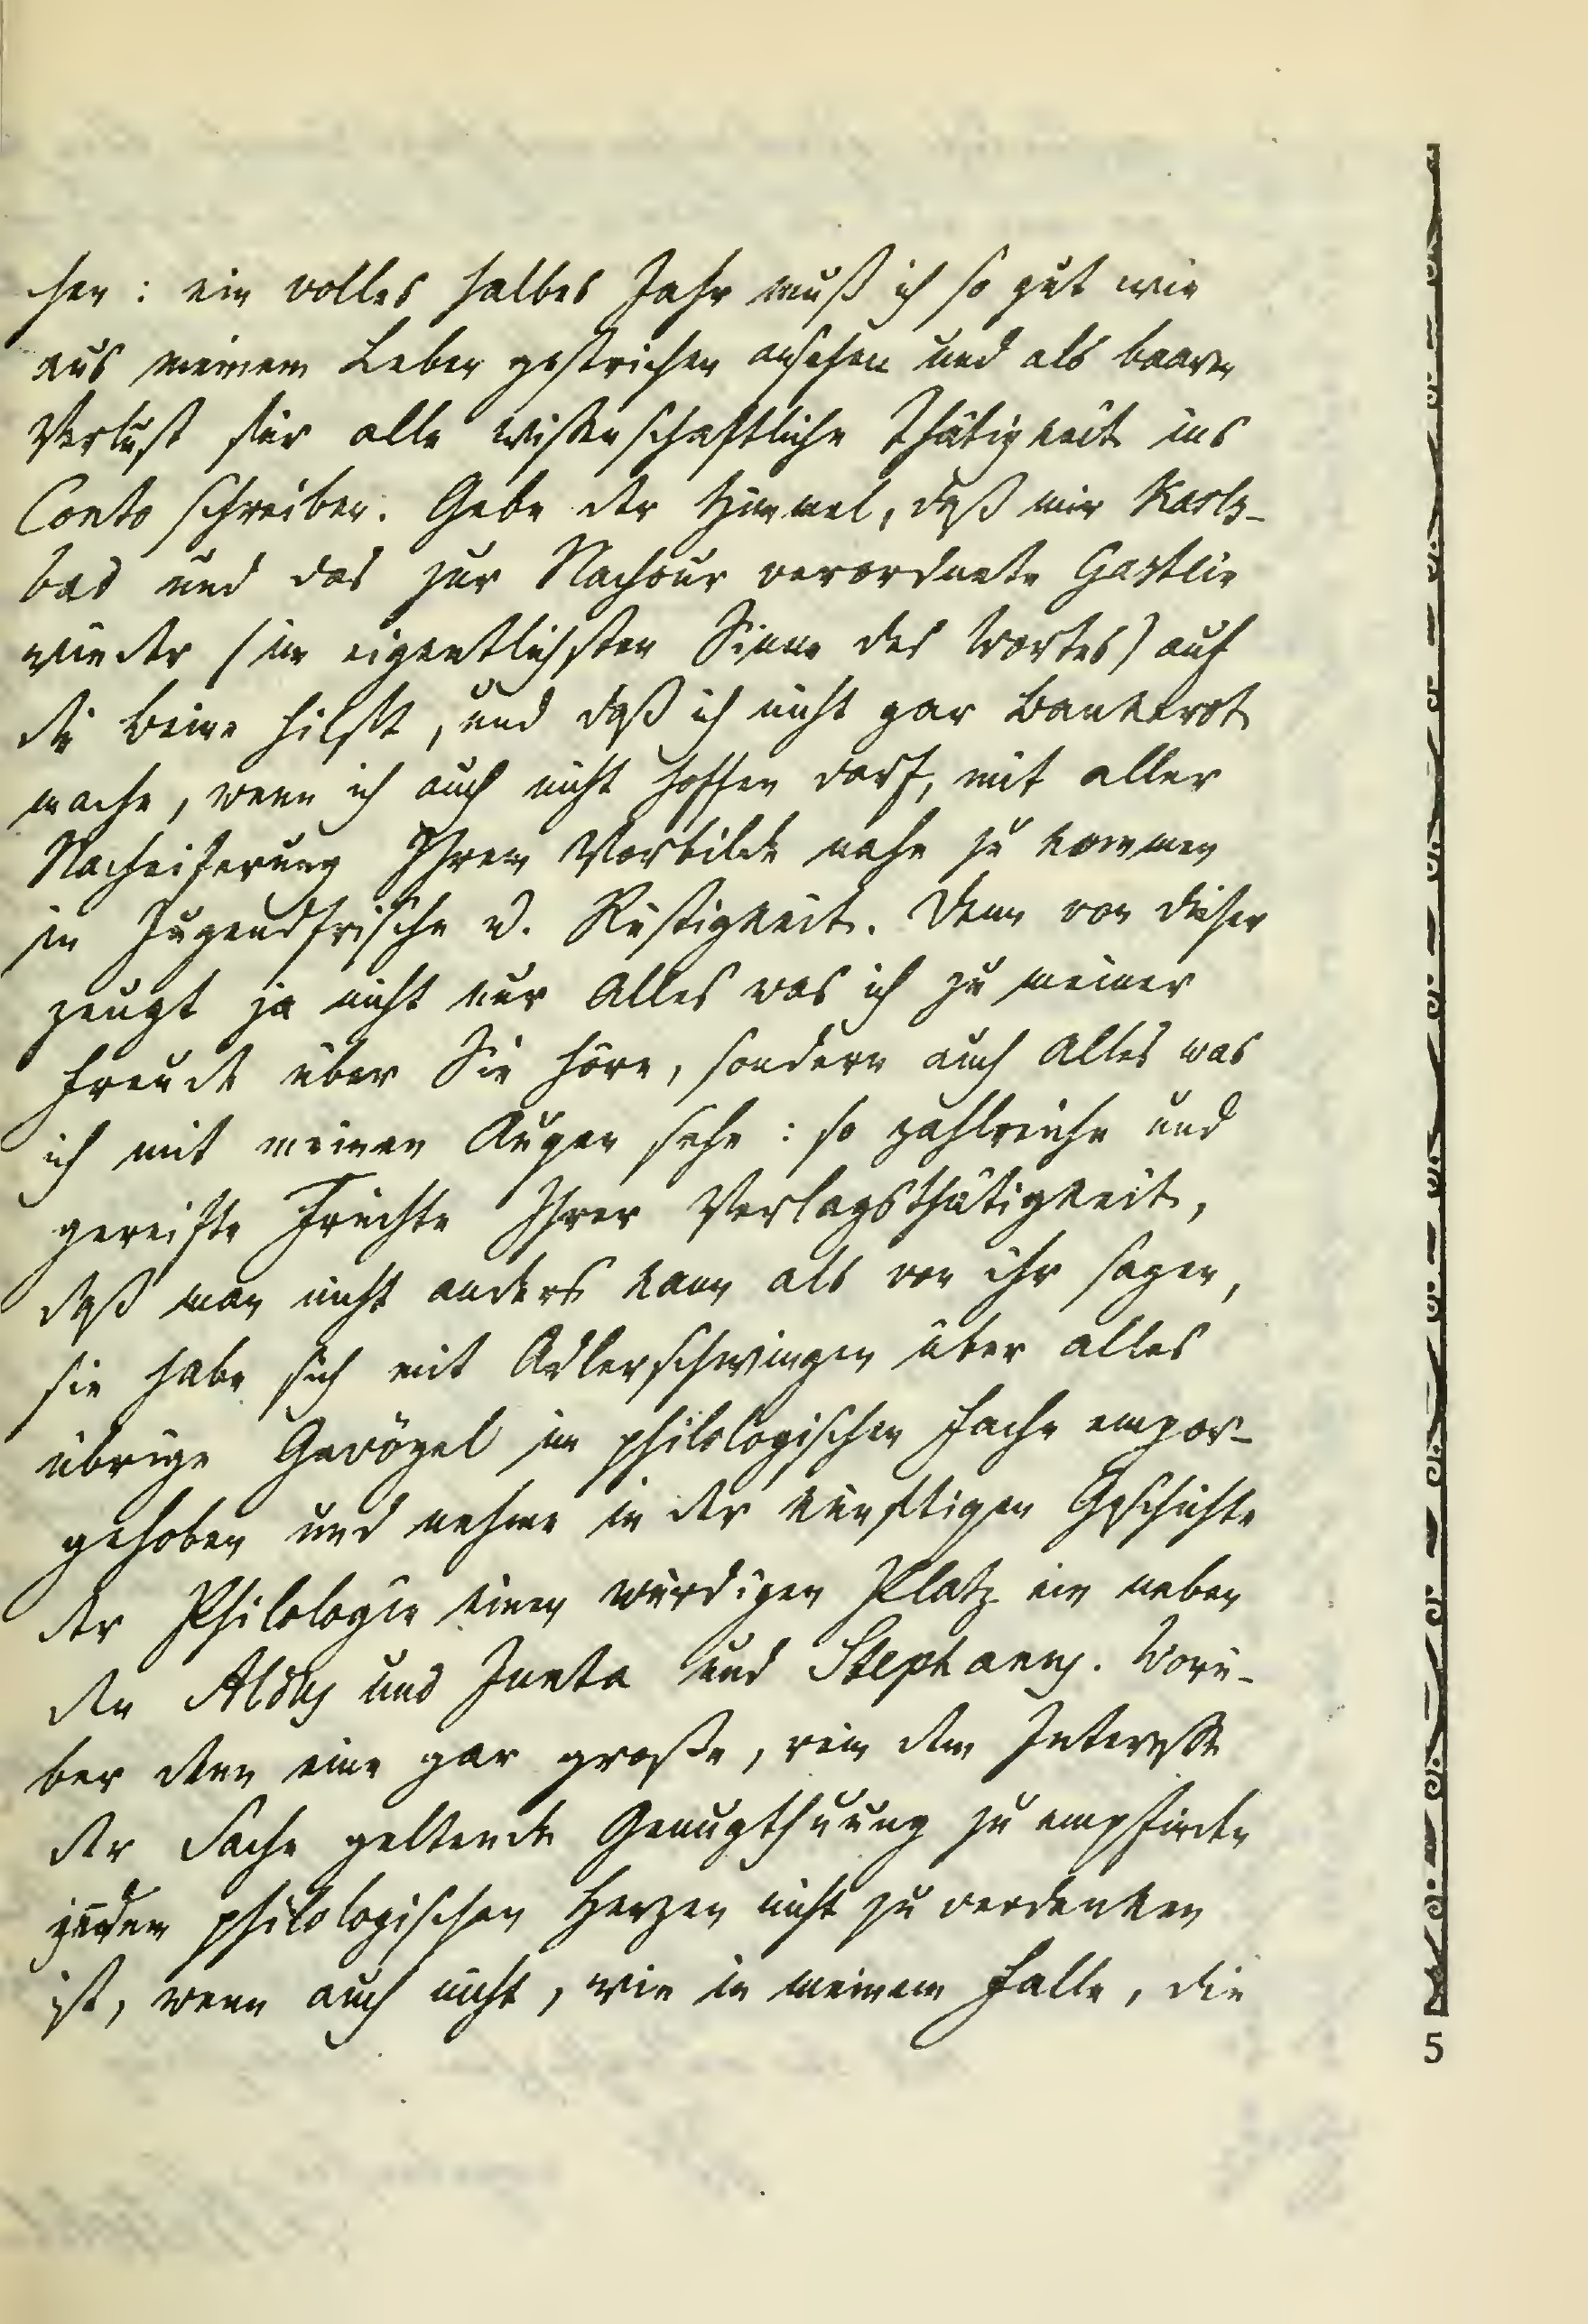 chen: ein volles halbes Jahr muß ich so gut wie
aus meinem Leben gestrichen ansehen und als baaren
Verlust für alle wissenschaftliche Thätigkeit ins
Conto schreiben. Gebe der Himmel, daß mir Karls-
bad und das zur Nachcur verordnete Gastein
wieder (im eigentlichsten Sinne des Wortes) auf
die Beine hilft, und daß ich nicht gar Bankerot
mache, wenn ich auch nicht hoffen darf, mit aller
Nacheiferung Ihrem Vorbilde nahe zu kommen
in Jugendfrische u. Rüstigkeit. Denn von dieser
zeugt ja nicht nur Alles was ich zu meiner
Freude über Sie höre, sondern auch Alles was
ich mit meinen Augen sehe: so zahlreiche und
gereifte Früchte Ihrer Verlagsthätigkeit,
daß man nicht anders kann als von ihr sagen,
sie habe sich mit Adlerschwingen über alles
übrige Gevögel im philologischen Fache empor-
gehoben und nehme in der künftigen Geschichte
der Philologie einen würdigen Platz ein neben
den Aldus und Junta und Stephanus. Worü-
ber denn eine gar große, rein dem Interesse
der Sache geltende Genugthuung zu empfinden
jedem philologischen Herzen nicht zu verdenken
ist, wenn auch nicht, wie in meinem Falle, die
5